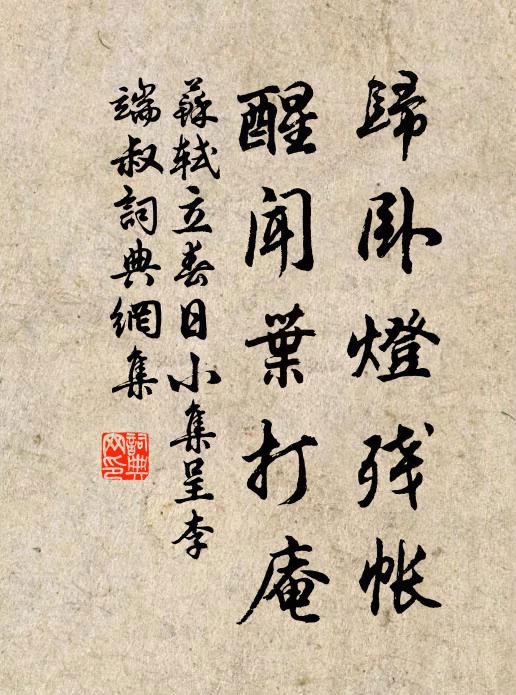 歸臥燈殘帳
醒聞葉打庵
蘇軾立春日小集呈李
端叔詞典網集
詞典网印